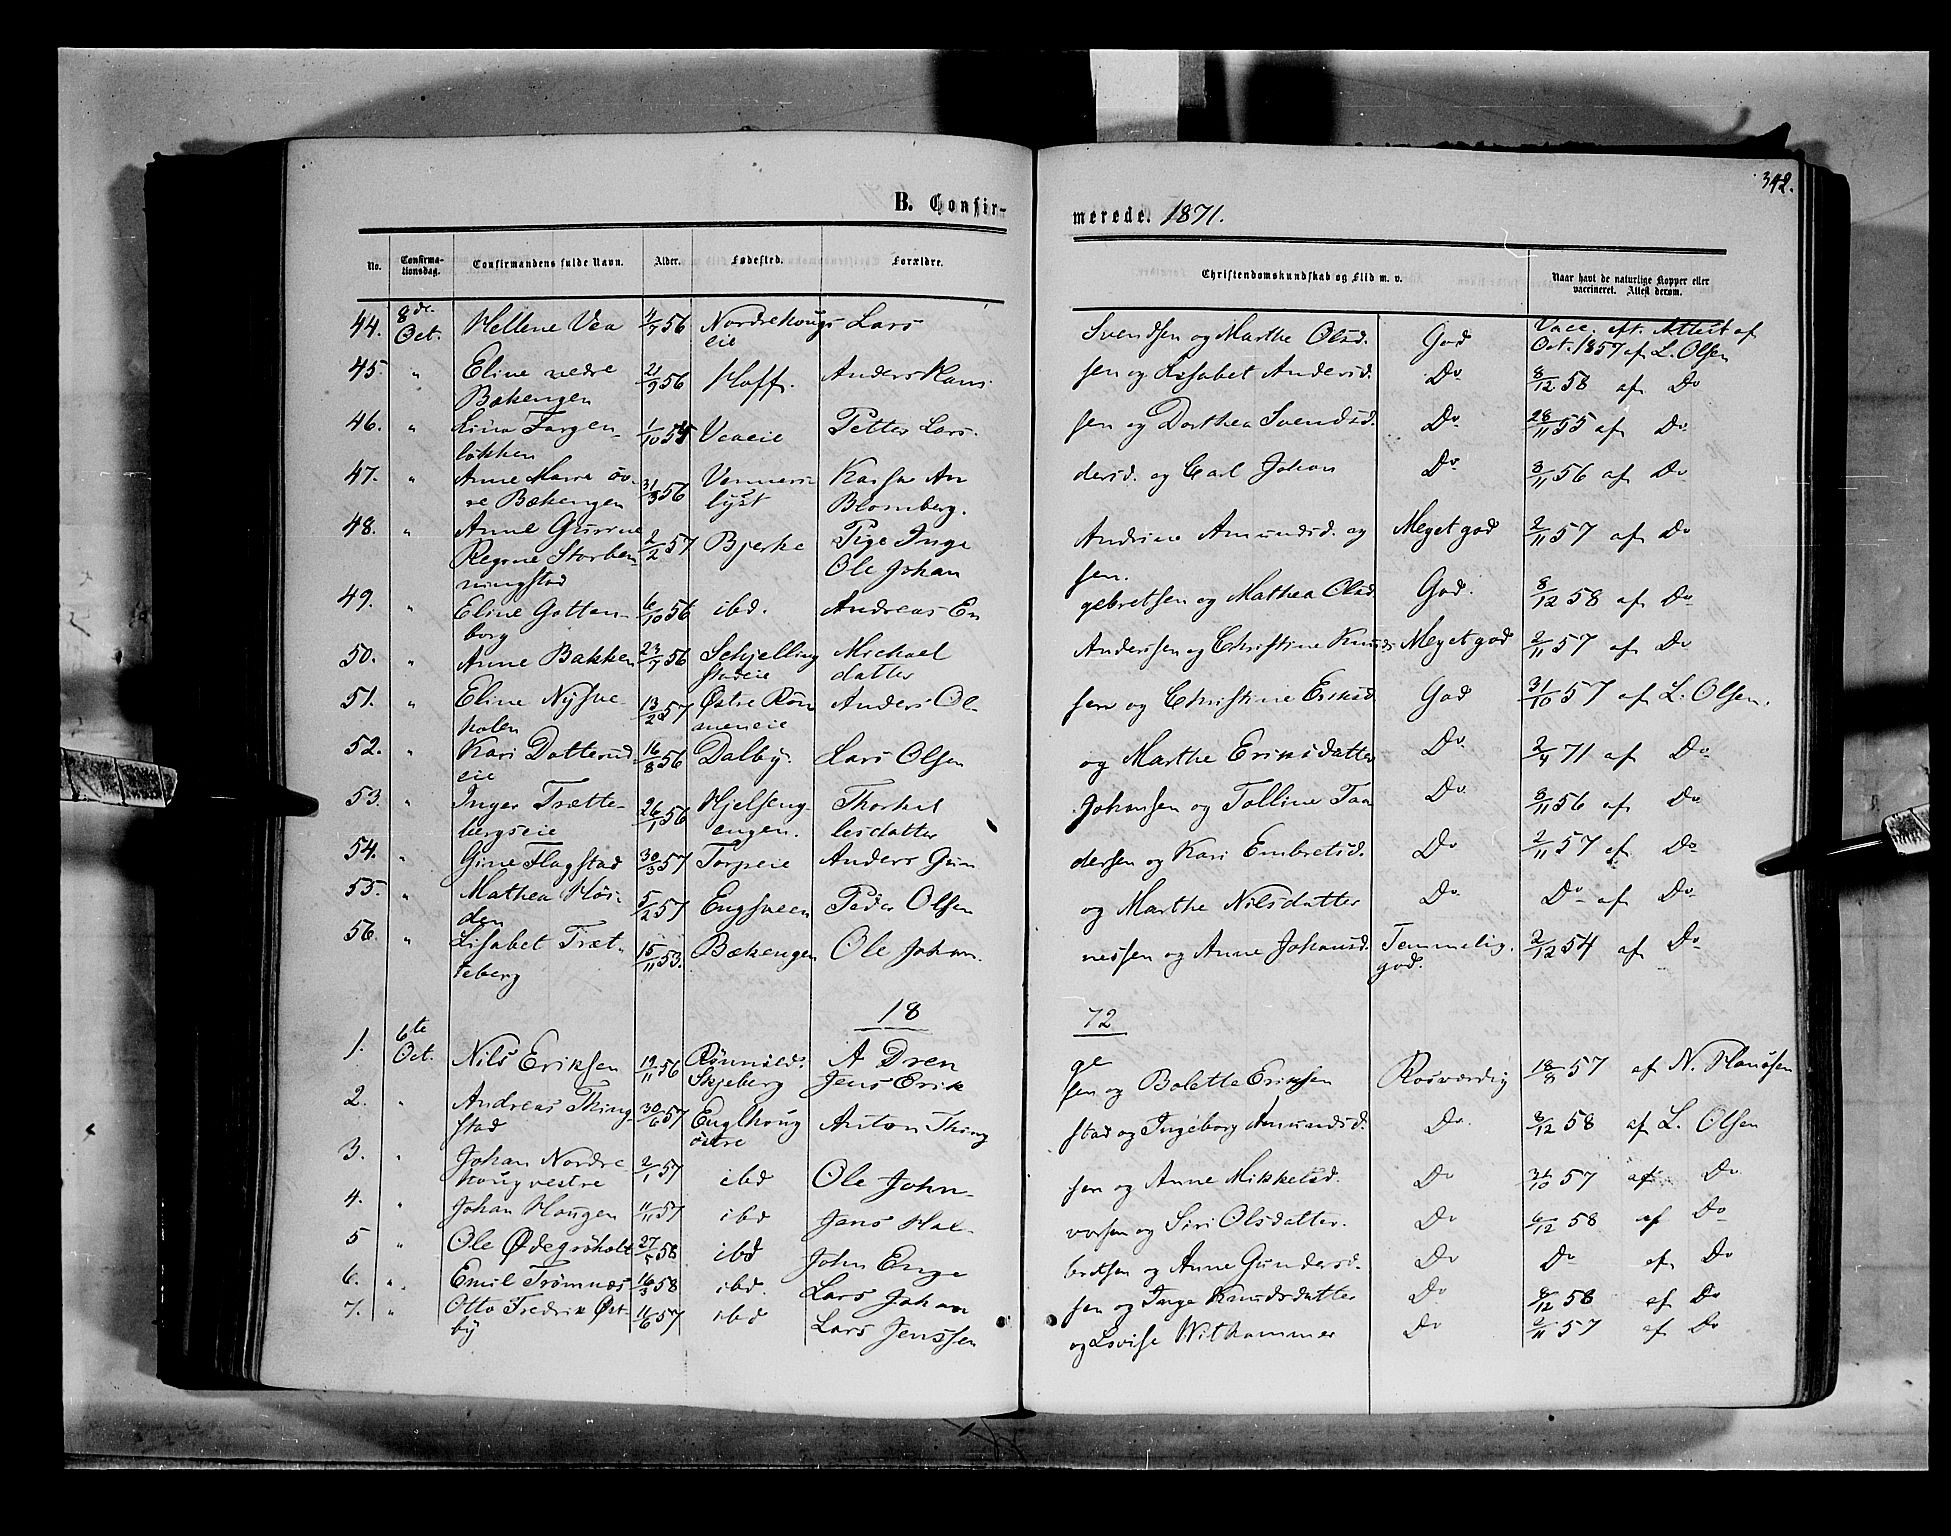 342.
B. Confir- merede. 1871.
No. Confirma-tionsdag. Confirmandens fulde Navn. Alder. Fødested. Forældre. Christendomskundskab og Flid m. v. Naar havt de naturlige Kopper eller vaccineret. Attest derom.
44. 8de Oct. Hellene Vea 1/7 56 Nordrekougs eie Lars Svendsen og Marthe Olsd. God Vacc. eft. Attest af Oct. 1857 af L. Olsen
45. " Eline nedre Bækengen 21/9 56 Hoff. Anders Hans- sen og Lisabet Andersd. Do 8/12 58 af Do
46. " Lina Fargen- løkken 1/10 54 Veaeie Petter Lars- sen og Dorthea Svendsd. Do 28/11 55 af Do
47. " Anne Marie øv- re Bækengen 31/3 56 Venners- lyst Kaisa An Blomberg. dersd. og Carl Johan Do 8/11 56 af Do
48. " Anne Gurine Regine Storben- ningstad 2/2 57 Bjerke Pige Inge Ole Johan Andrine Amundsd. og sen. Meget god 2/11 57 af Do
49. " Eline Gotten- borg 6/10 56 ibd. Andreas En gebretsen og Mathea Olsd. God. 8/12 58 af Do
50. " Anne Bakken 23/7 56 Schjelling stadeie Michael datter Anderssen og Christine Knuds Meget god 2/11 57 af Do
51. " Eline Nysve- kolen 13/2 57 Østre Røn neneie Anders Ol- sen og Christine Eriksd. God 31/10 57 af L. Olsen.
52. " Kari Dotterud eie 16/8 56 Dalby. Lars Olsen og Marthe Eriksdatter Do 2/4 71 af Do
53. " Inger Trætte- bergseie 26/1 56 Hjelseng- engen. Thorkel lesdatter Johansen og Tolline Taa Do 8/11 56 af Do
54. " Gine Flagstad 30/3 57 Torpeie Anders Gun dersen og Kari Embretsd. Do 2/11 57 af Do
55. " Mathea Høi- den 5/2 57 Engsveen Peder Olsen og Marthe Nilsdatter Do Do af Do
56. " Lisabet Træt- teberg 15/11 53. Bækengen Ole Johan- nessen og Anne Johansd. Temmelig god. 2/12 54 af Do
18 72
1. 6te Oct. Nils Eriksen 19/11 56 Rønnild. Skjeberg A Dren Jens Erik ge sen og Bolette Eriksen Rosværdig 18/8 57 af N. Hansen
2. " Andreas Thing- stad 30/6 57 Englhoug østre Anton Thing stad og Ingeborg Amundsd. Do 8/12 58 af L. Olsen
3. " Johan Nordre kougvestre 2/1 57 ibd Ole John- sen og Anne Mikkelsd. Do 31/10 57 af Do
4. " Johan Haugen 11/11 57 ibd Jens Hal- vorsen og Siri Olsdatter. Do 6/12 58 af Do
5 " Ole Ødegrøholt 27/5 58 ibd John Enge bretsen og Anne Gundersd. Do Do af Do
6. " Emil Trømnæs 16/3 58 ibd. Lars Johan sen og Inge Knudsdatter Do 8/12 58 af Do
7. " Otto Fredrik Øst- by 11/6 57 ibd Lars Jenssen og Lovise Withammer Do 2/11 57 af Do